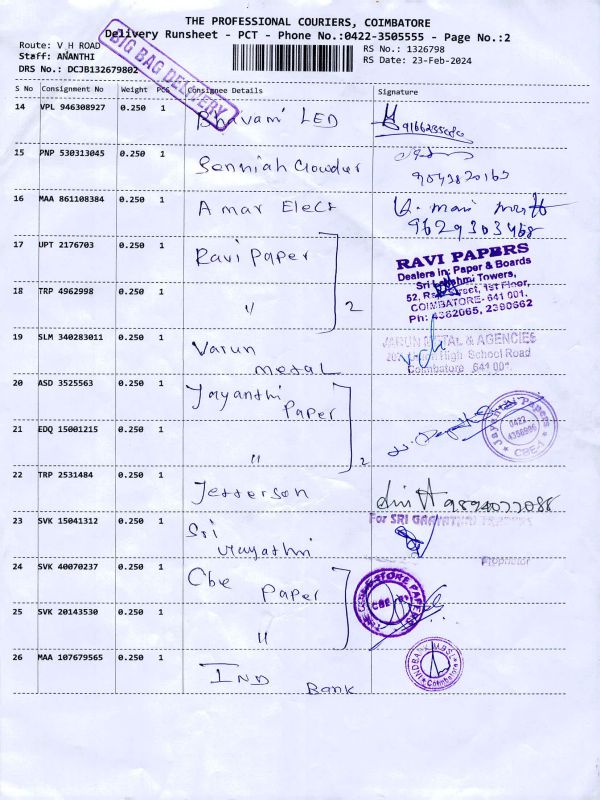 THE PROFESSIONAL COURIERS, COIMBATORE
Delivery Runsheet - PCT - Phone No.:0422-3505555 - Page No.:2
Route: V H ROAD
RS No.: 1326798
Staff: ANANTHI
RS Date: 23-Feb-2024
DRS No.: DCJB132679802
BIG BAG DELIVERY
S No Consignment No Weight PCS Consignee Details Signature
14 VPL 946308927 0.250 1 Bhavani LED
15 PNP 530313045 0.250 1
16 MAA 861108384 0.250 1 Amar Elect
17 UPT 2176703 0.250 1 Ravi Paper
RAVI PAPERS
Dealers in: Paper & Boards
Sri Lakshmi Towers,
1st Floor,
COIMBATORE- 641 001.
Ph: 4382065, 2390662
18 TRP 4962998 0.250 1 " 2
19 SLM 340283011 0.250 1 Varun
metal
VARUN METAL & AGENCIES
High School Road
Coimbatore 641 001
20 ASD 3525563 0.250 1 Jayanthi
Paper
Jayanthi Papers
0422
CBE-1
21 EDQ 15001215 0.250 1 " 2
22 TRP 2531484 0.250 1 Jefferson
23 SVK 15041312 0.250 1 Sri
For SRI GAAYATHRI
Proprietor
24 SVK 40070237 0.250 1 Cbe Paper
25 SVK 20143530 0.250 1 "
26 MAA 107679565 0.250 1 IND Bank
INDBANK M.B.S.L
Coimbatore